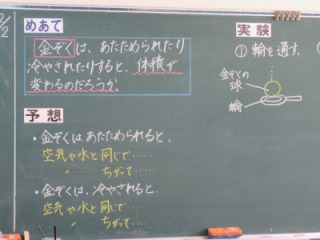 2/2
めあて
金ぞくは、あたためられたり
冷やされたりすると、体積が
変わるのだろうか。
予想
・金ぞくはあたためられると、
空気や水と同じで……
〃 ちがって……
・金ぞくは、冷やされると、
空気や水と同じで……
〃 ちがって……
実験
① 輪を通す。
金ぞくの
球
輪